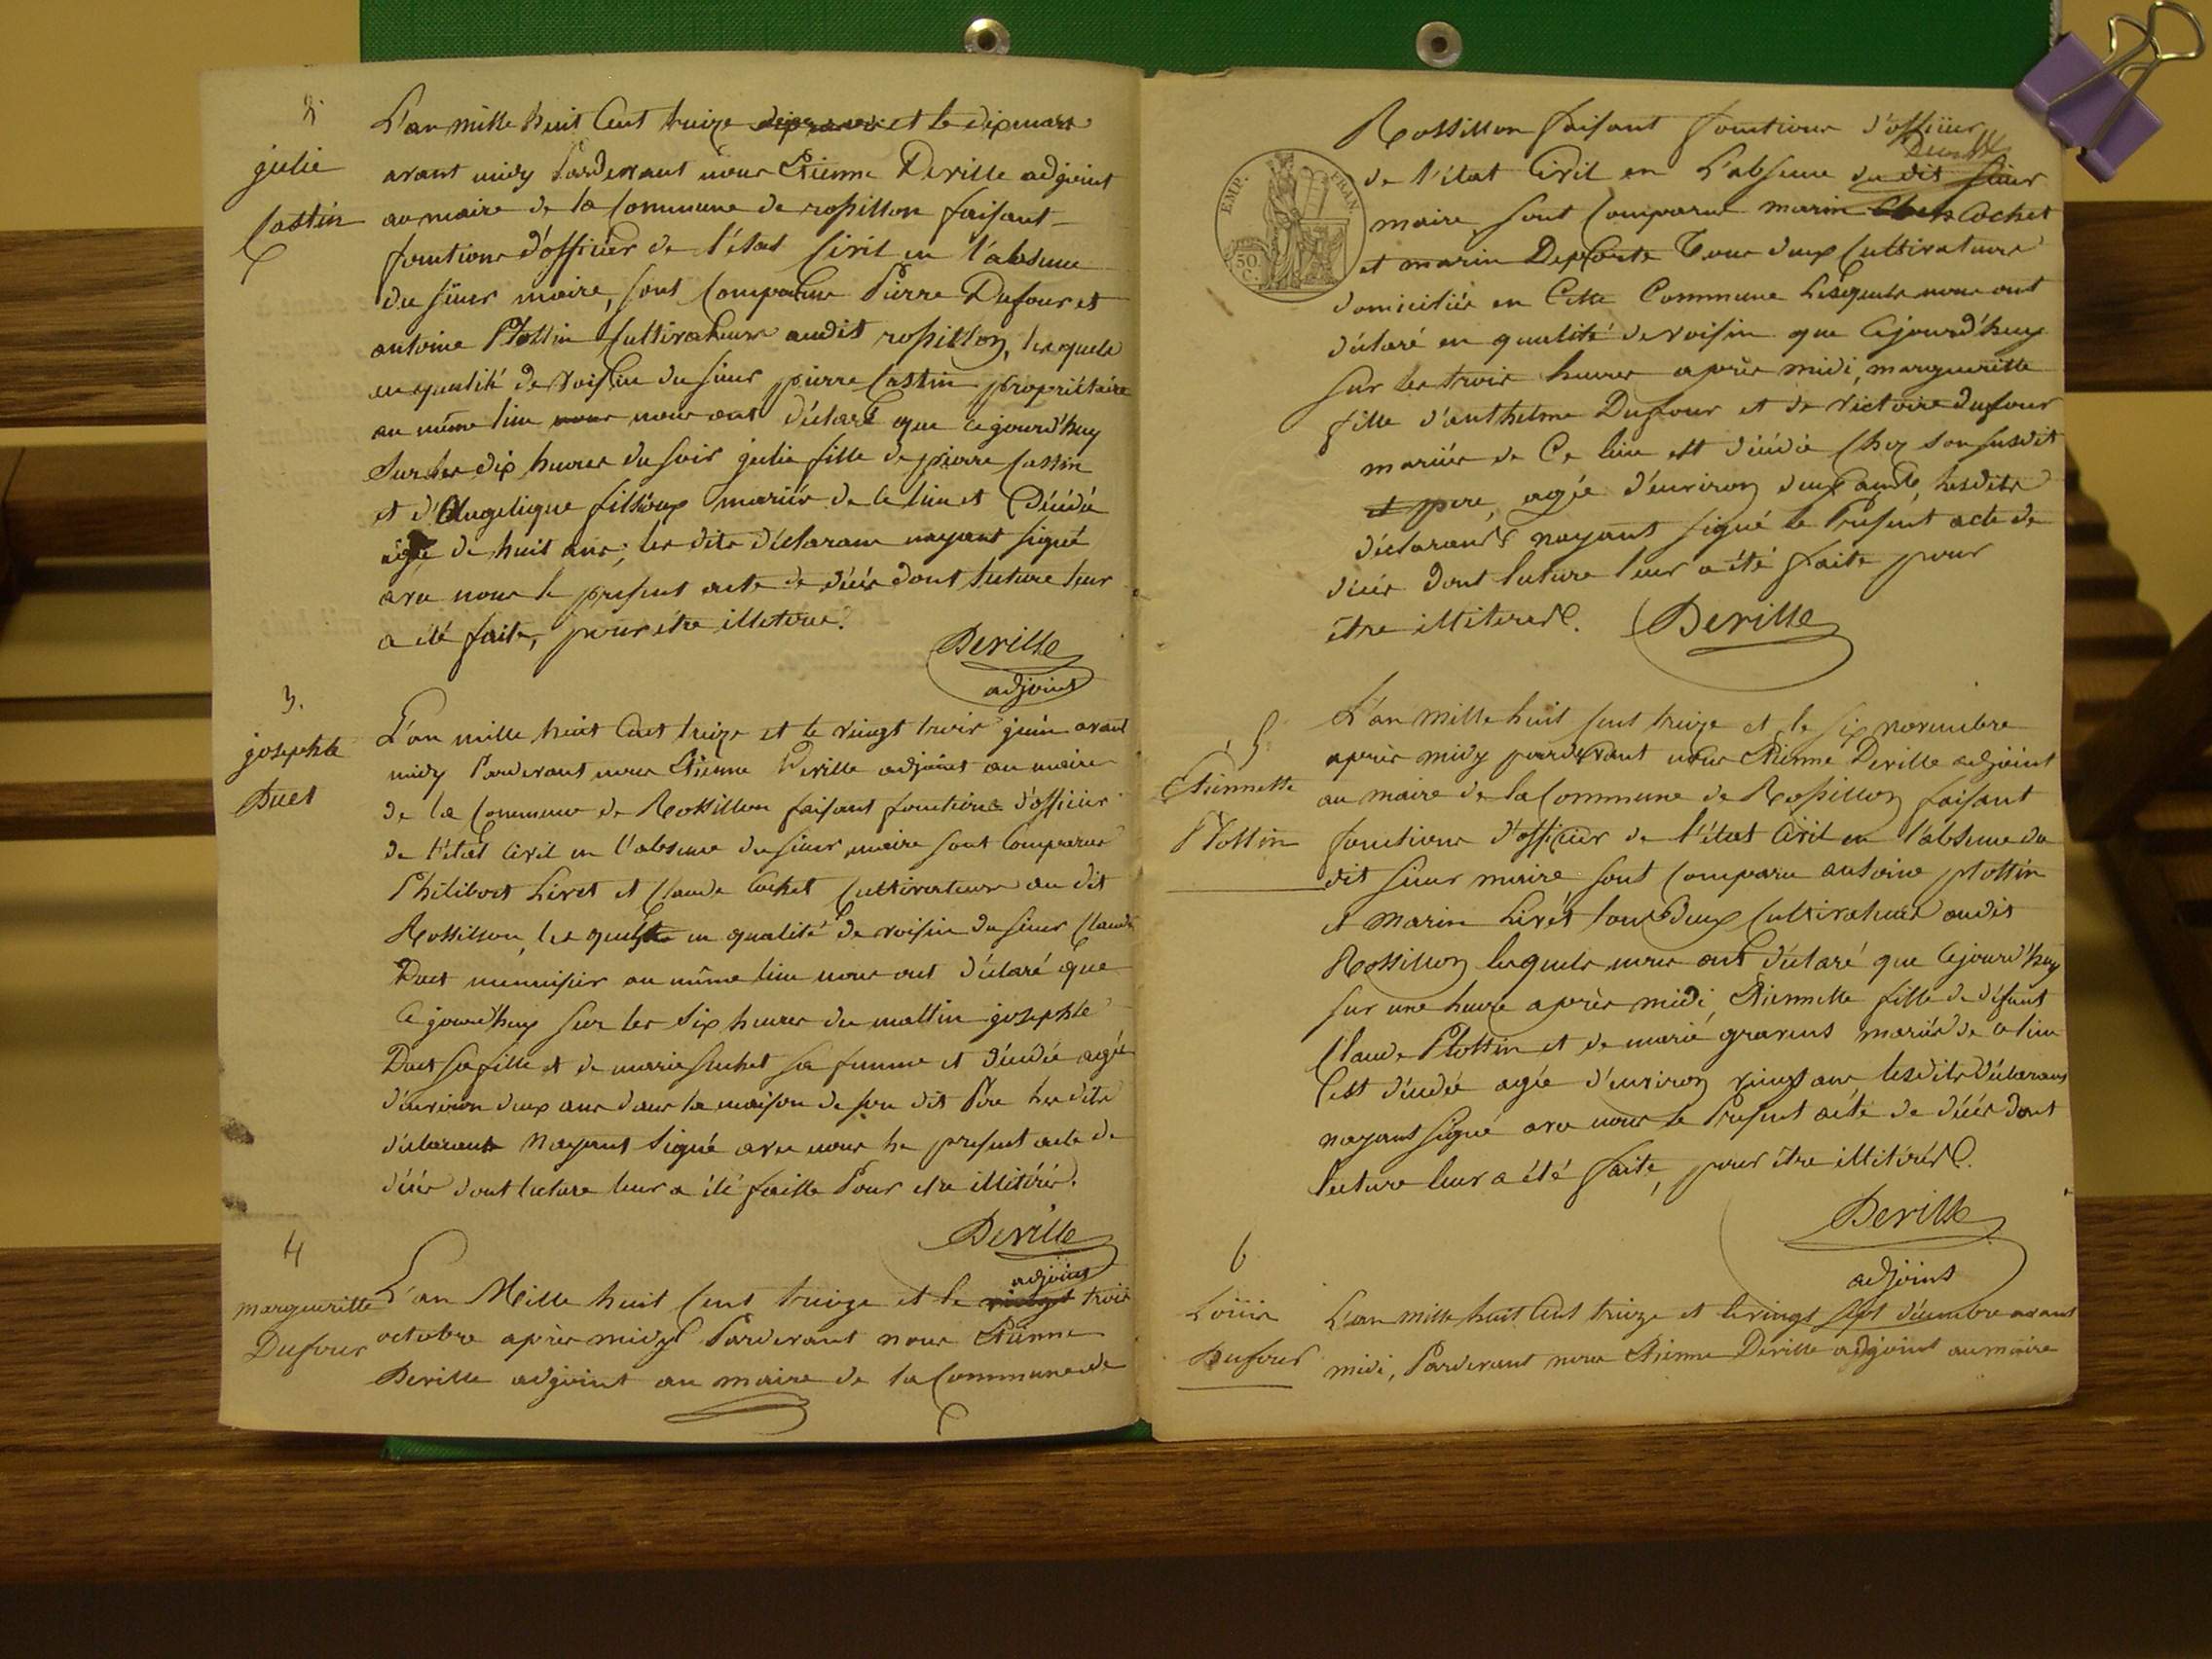 2
julie
Castin
L'an mille huit Cent treize et le dix mars
avant midy Pardevant nous Etienne Deville adjoint
au maire de la Commune de rossillon faisant
fonctions d'officier de l'état Civil en l'absence
du sieur maire, sont Comparus Pierre Dufour et
antoine Plottin Cultivateurs audit rossillon, lesquels
en qualité de voisin du sieur pierre Castin propriétaire
au même lieu nous ont déclaré que cejourd'huy
Sur les dix heures du soir julie fille de pierre Castin
et d'Angelique mariés de ce lieu et Décédé
agée de huit ans; les dits déclarans nayant signé
avec nous le present acte de décès dont lecture leur
a été faite, pour être illeterés.
Deville
adjoint
3.
josephte
Duet
L'an mille huit Cent treize et le vingt trois juin avant
midy Pardevant nous Etienne Deville adjoint au maire
de la Commune de Rossillon faisant fonctions d'officier
de l'état Civil en l'absence du sieur maire sont Comparus
Philibert Livet et Claude Cochet Cultivateurs au dit
Rossillon, les quels en qualité de voisin du sieur Claude
Duet menuisier au même lieu nous ont déclaré que
Cejourd'huy sur les six heures du mattin josephte
Duet sa fille et de marie sa femme et décédée agée
d'environ deux ans dans la maison de son dit Père les dits
déclarants Nayant Signé avec nous le present acte de
décès dont lecture leur a été faitte Pour etre illitérés.
Deville
adjoint
4
margueritte
Dufour
L'an Mille huit Cent treize et le vingt trois
octobre après midy Pardevant nous Etienne
Deville adjoint au maire de la Commune de
Rossillon faisant fonctions d'officier
Deville
de l'état Civil en L'absence du dit sieur
EMP. FRAN.
50 C.
maire, sont Comparus marin Cochet
et marin Tous deux Cultivateurs
domiciliés en Cette Commune Lesquels nous ont
déclaré en qualité de voisin que Cejourd'huy
sur les trois heures après midi, margueritte
fille d'anthelme Dufour et de victoire dufour
mariés de Ce lieu est décédée Chez son susdit
et pere, agée d'environ deux ans, lesdits
déclarants nayant signé le Present acte de
décès dont lecture leur a été faite pour
être illiterés.
Deville
5
Etiennette
Plottin
L'an mille huit Cent treize et le six novembre
après midy pardevant nous Etienne Deville adjoint
au maire de la Commune de Rossillon faisant
fonctions d'officier de l'état Civil en l'absence du
dit sieur maire, sont Comparu antoine plottin
et marin Livet tous deux Cultivateurs audit
Rossillon lesquels nous ont déclaré que Cejourd'huy
sur une heure après midi, Etiennette fille de défunt
Claude Plottin et de marie mariés de ce lieu
est décédée agée d'environ vingt ans lesdits déclarans
nayant signé avec nous le Present acte de décès dont
lecture leur a été faite, pour être illitérés.
Deville
adjoint
6
Loüis
Dufour
L'an mille huit Cent treize et le vingt sept décembre avant
midi, Pardevant nous Etienne Deville adjoint au maire